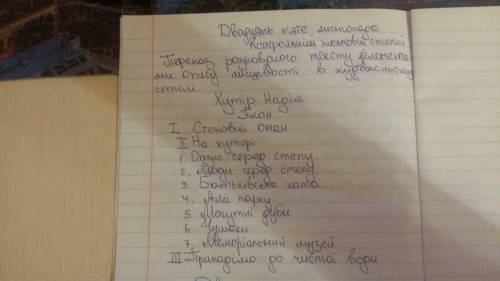 Двадцять п'яте листопада
Контрольний письмовий стислий
Переказ розповідного тексту з елемента-
ми опису місцевості в художньому
стилі.
Хутір Надія
План.
I Степовий океан
II На хуторі
1. Оазис серед степу
2. Люди серед степу
3. Батьківська хата.
4. Алеї парку
5. Могутні дуби
6 Чумаки
7. Меморіальний музей
III Припадімо до чистої води